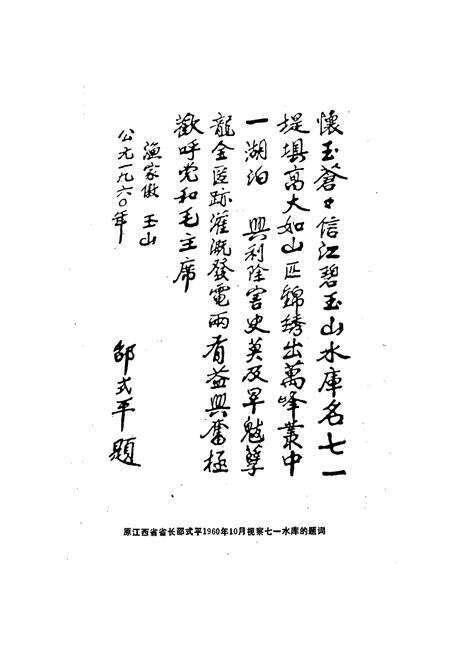 懷玉蒼々信江碧玉山水庫名七一
堤埧高大如山匹錦綉出萬峰叢中
一湖泊 興利除害史莫及旱魃孽
龍全匿跡灌溉發電兩有益興奮極
歡呼党和毛主席
漁家傲 玉山
公元一九六〇年
邵式平題
原江西省省长邵式平1960年10月视察七一水库的题词